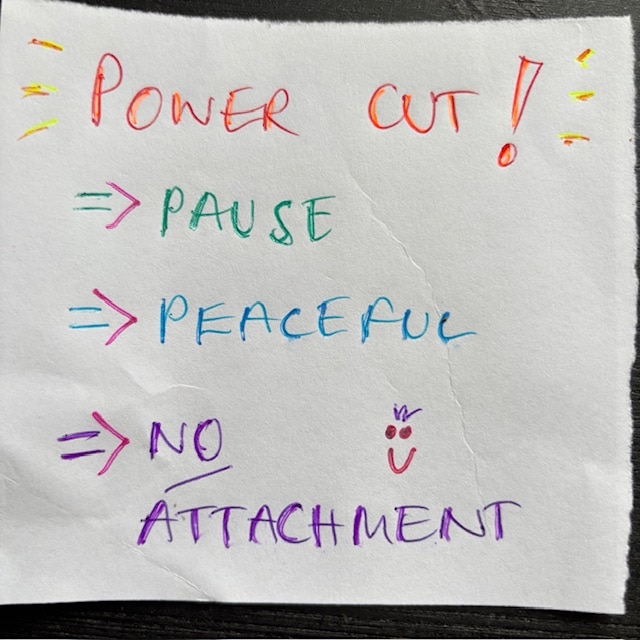 POWER CUT!
=> PAUSE
=> PEACEFUL
=> NO
ATTACHMENT